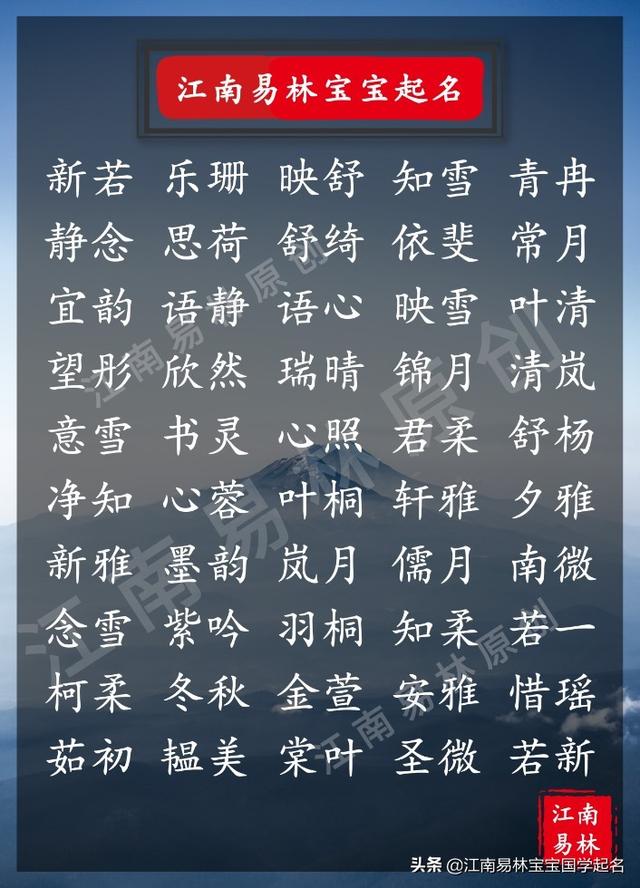 江南易林宝宝起名
新若 乐珊 映舒 知雪 青冉
静念 思荷 舒绮 依斐 常月
宜韵 语静 语心 映雪 叶清
望彤 欣然 瑞晴 锦月 清岚
意雪 书灵 心照 君柔 舒杨
净知 心蓉 叶桐 轩雅 夕雅
新雅 墨韵 岚月 儒月 南微
念雪 紫吟 羽桐 知柔 若一
柯柔 冬秋 金萱 安雅 惜瑶
茹初 韫美 棠叶 圣微 若新
江南易林原创
江南易林原创
江南易林原创
江南
易林
头条 @江南易林宝宝国学起名